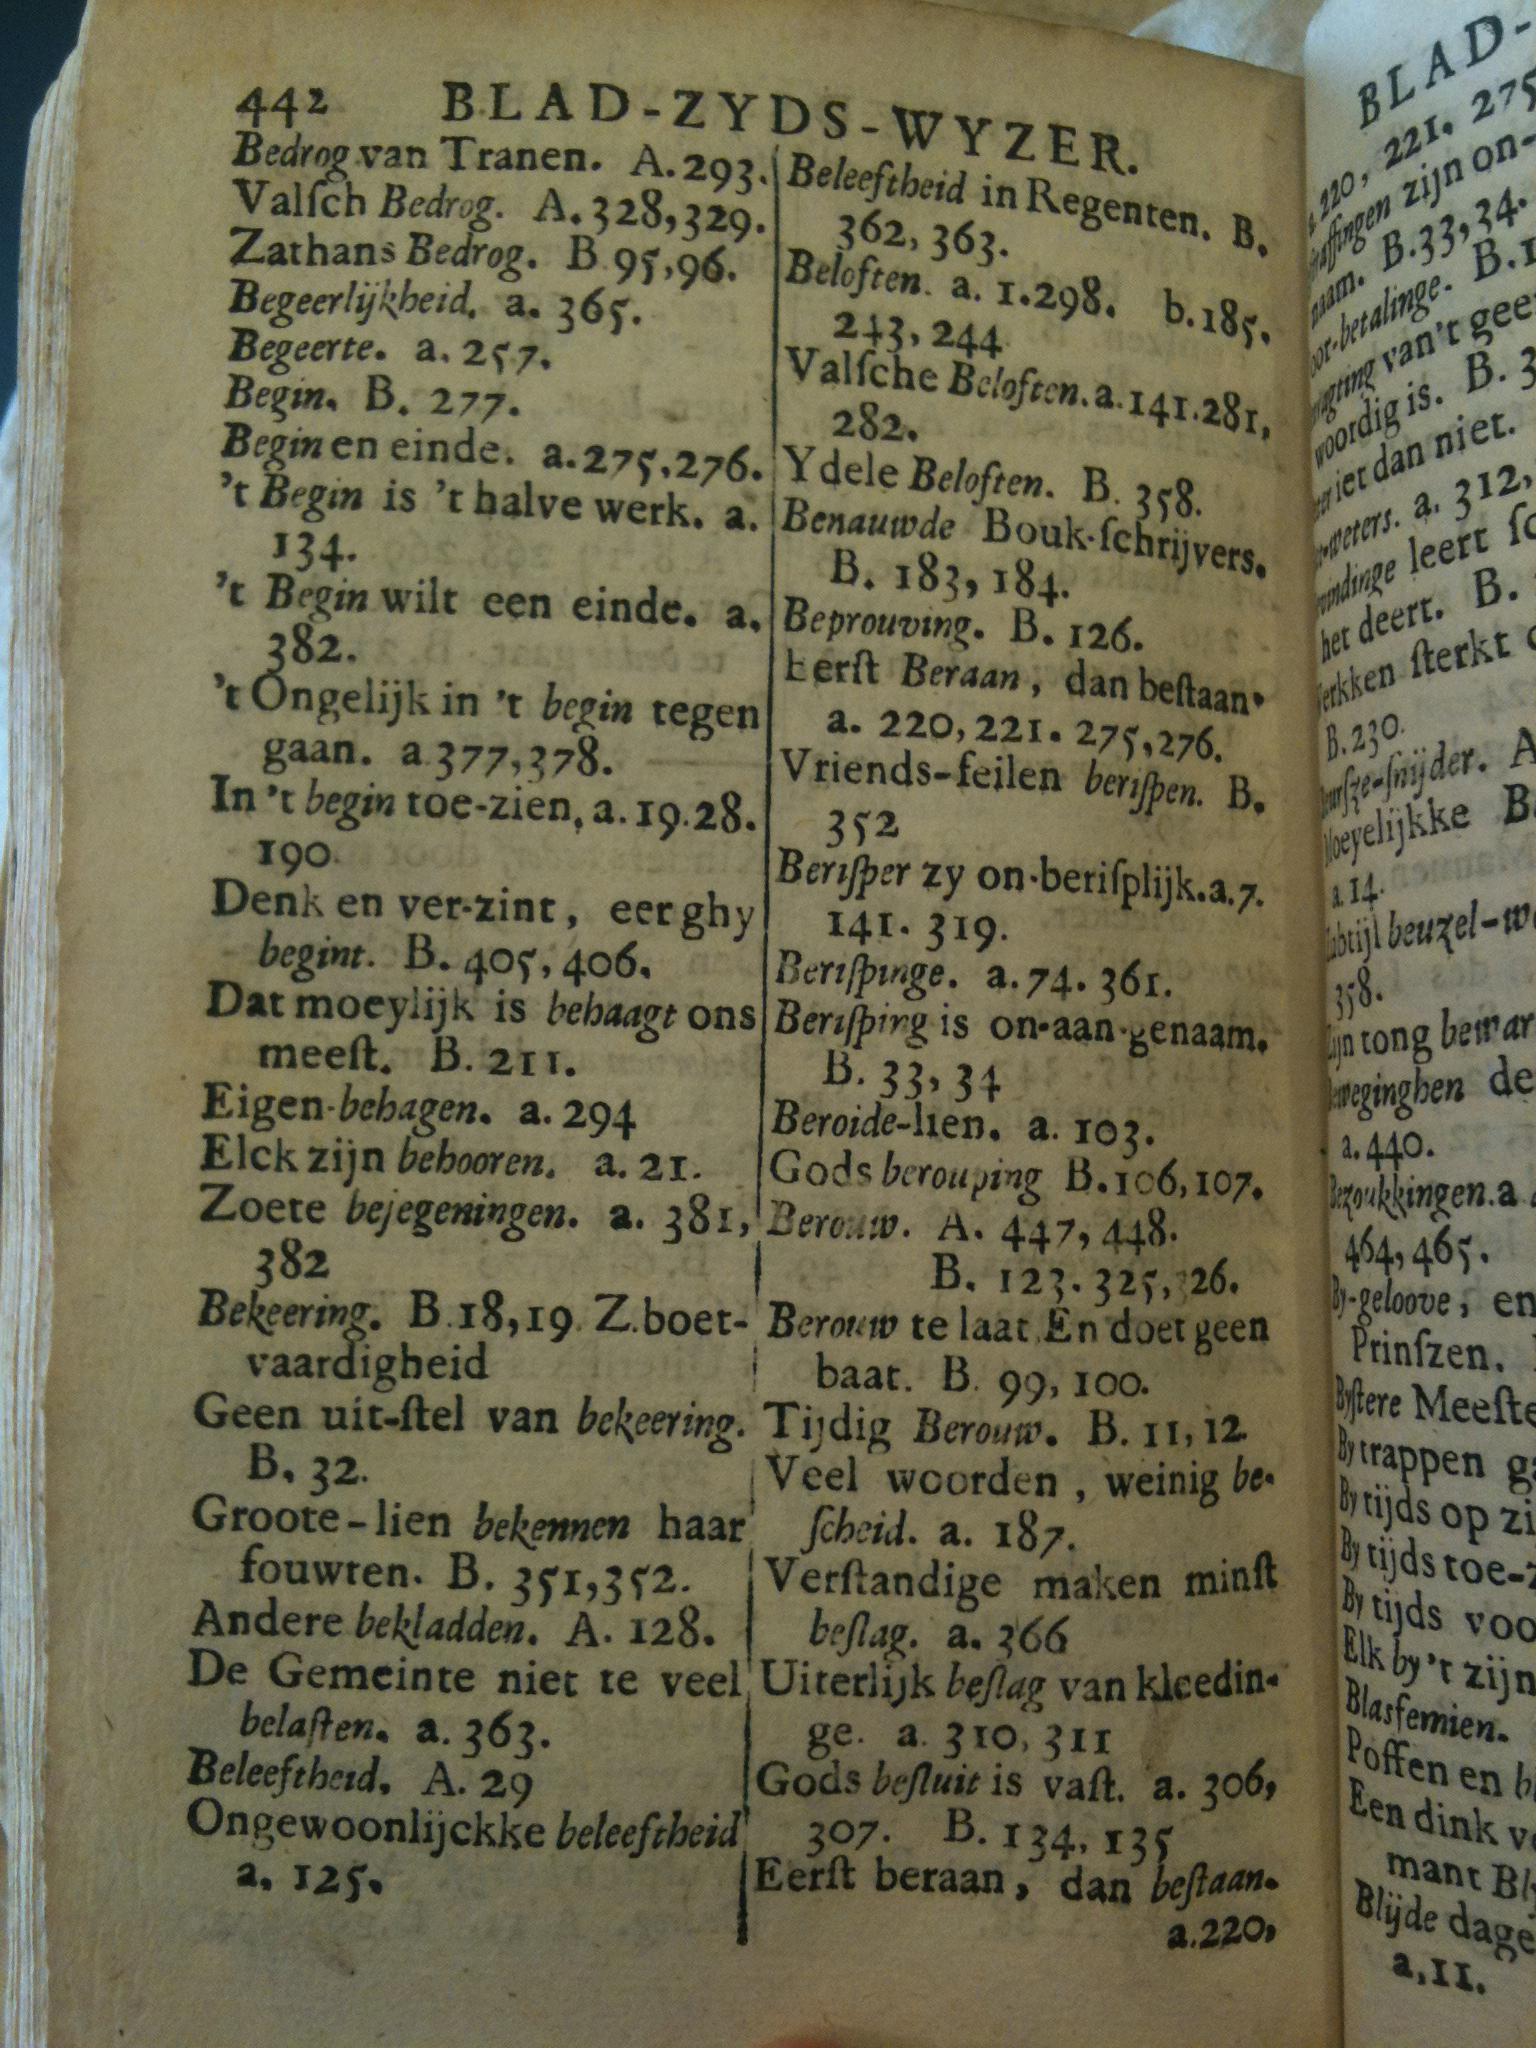 442 BLAD-ZYDS-WYZER.
Bedrog van Tranen. A. 293.
Valſch Bedrog. A. 328, 329.
Zathans Bedrog. B 95, 96.
Begeerlijkheid. a. 365.
Begeerte. a. 257.
Begin. B. 277.
Begin en einde. a. 275, 276.
't Begin is 't halve werk. a.
134.
't Begin wilt een einde. a.
382.
't Ongelijk in 't begin tegen
gaan. a 377, 378.
In 't begin toe-zien, a. 19. 28.
190.
Denk en ver-zint, eer ghy
begint. B. 405, 406.
Dat moeylijk is behaagt ons
meeſt. B. 211.
Eigen-behagen. a. 294
Elck zijn behooren. a. 21.
Zoete bejegeningen. a. 381,
382
Bekeering. B. 18, 19. Z. boet-
vaardigheid
Geen uit-ſtel van bekeering.
B. 32.
Groote-lien bekennen haar
fouwten. B. 351, 352.
Andere bekladden. A. 128.
De Gemeinte niet te veel
belaſten. a. 363.
Beleeftheid. A. 29
Ongewoonlijckke beleeftheid
a. 125.
Beleeftheid in Regenten. B.
362, 363.
Beloften. a. 1. 298. b. 185.
243, 244
Valſche Beloften. a. 141. 281,
282.
Ydele Beloften. B. 358.
Benauwde Bouk-ſchrijvers.
B. 183, 184.
Beprouving. B. 126.
Eerſt Beraan, dan beſtaan.
a. 220, 221. 275, 276.
Vriends-feilen beriſpen. B.
352
Beriſper zy on-beriſplijk. a. 7.
141. 319.
Beriſpinge. a. 74. 361.
Beriſping is on-aan-genaam.
B. 33, 34
Beroide-lien. a. 103.
Gods berouping B. 106, 107.
Berouw. A. 447, 448.
B. 123. 325, 326.
Berouw te laat En doet geen
baat. B. 99, 100.
Tijdig Berouw. B. 11, 12.
Veel woorden, weinig be-
ſcheid. a. 187.
Verſtandige maken minſt
beſlag. a. 366
Uiterlijk beſlag van kleedin-
ge. a. 310, 311
Gods beſluit is vaſt. a. 306,
307. B. 134, 135
Eerſt beraan, dan beſtaan.
a. 220,
BLAD-
a. 220, 221. 275
zijn on-
B. 33, 34.
-betalinge. B.
van 't
woordig is. B. 3
iet dan niet.
-weters. a. 312,
leert
het deert. B.
ſterkt
B. 230.
-ſnijder. A
Moeyelijkke
a. 14.
beuzel-
358.
Zijn tong
de
a. 440.
Bezoukkingen. a
464, 465.
By-geloove, en
Prinſzen.
Byſtere
By trappen
By tijds op
By tijds toe-
By tijds
Elk by 't zijn
Blasfemien.
Poffen en
Een dink
mant
Blijde
a, 11.